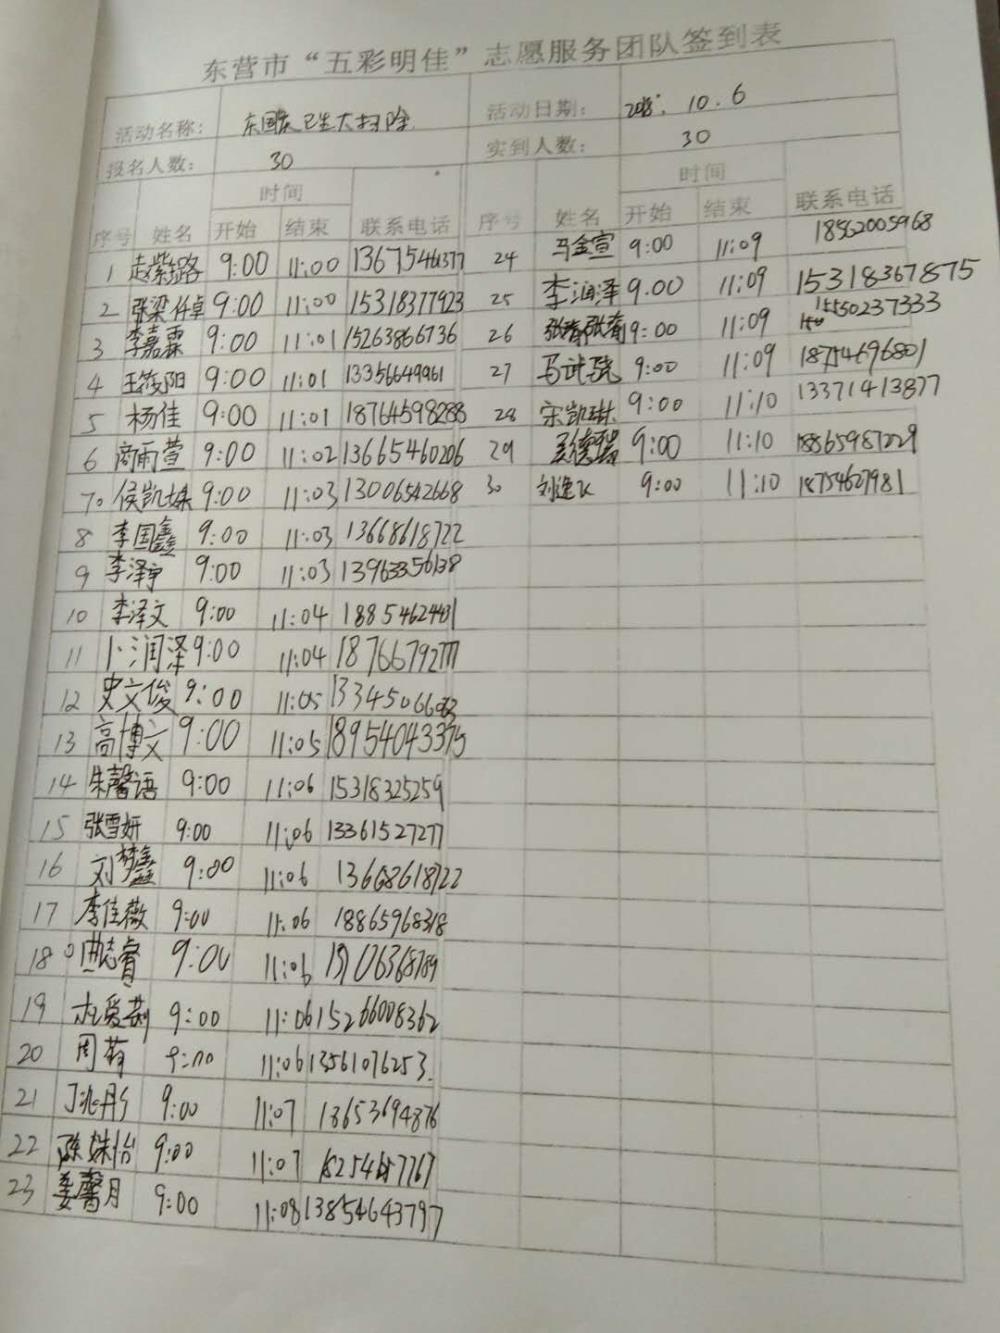 东营市“五彩明佳”志愿服务团队签到表
活动名称： 东国庆卫生大扫除 活动日期： 10.6
报名人数： 30 实到人数： 30
时间 时间
序号 姓名 开始 结束 联系电话 序号 姓名 开始 结束 联系电话
1 赵紫璐 9:00 11:00 13675461377 24 马金宣 9:00 11:09 18562005968
2 张梁任卓 9:00 11:00 15318377923 25 李润泽 9:00 11:09 15318367875
3 李嘉霖 9:00 11:01 15263866736 26 9:00 11:09 15550237333
4 王筱阳 9:00 11:01 13356649961 27 马武骁 9:00 11:09 18754696801
5 杨佳 9:00 11:01 18764598288 28 宋凯琳 9:00 11:10 13371413877
6 商雨萱 9:00 11:02 13665460206 29 9:00 11:10 18865987229
7 侯凯姝 9:00 11:03 13006542668 30 刘逸飞 9:00 11:10 18754627981
8 李国鑫 9:00 11:03 13668618722
9 李泽宇 9:00 11:03 13963356138
10 李泽文 9:00 11:04 18854624431
11 卜润泽 9:00 11:04 18766792777
12 史文俊 9:00 11:05
13 高博文 9:00 11:05 18954043375
14 朱馨语 9:00 11:06 15318325259
15 张雪妍 9:00 11:06 13361527277
16 刘梦鑫 9:00 11:06 13668618722
17 李佳薇 9:00 11:06 18865968318
18 曲志睿 9:00 11:06
19 杜爱莉 9:00 11:06 15266008362
20 周莉 9:00 11:06 13561076253
21 丁兆彤 9:00 11:07 13653694876
22 陈姝怡 9:00 11:07
23 姜馨月 9:00 11:08 13854643797